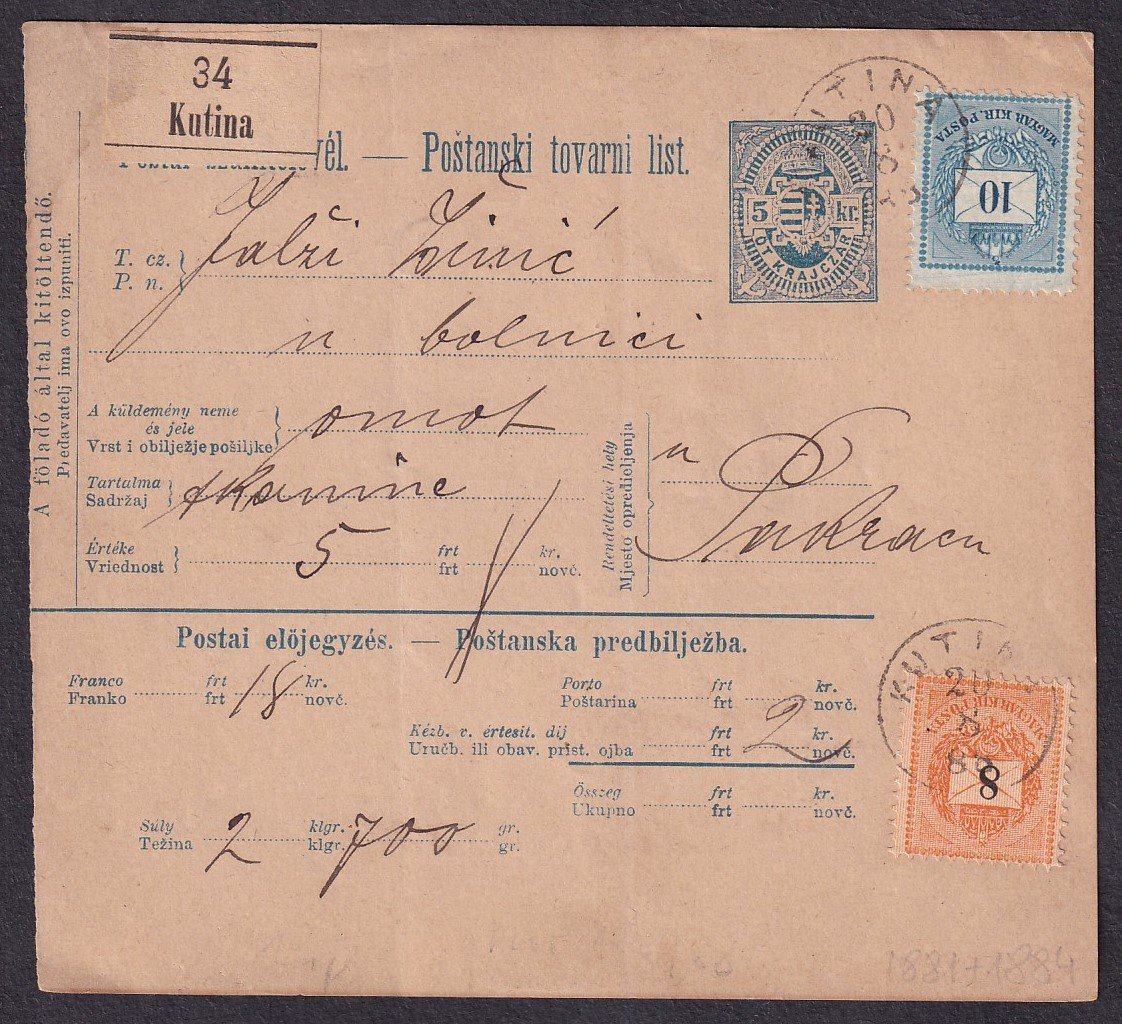 34
Kutina
vél. — Poštanski tovarni list.
T. cz.
P. n.
u bolnici
A küldemény neme
és jele
Vrst i obilježje pošiljke
omot
Tartalma
Sadržaj
Értéke frt kr.
Vriednost 5 frt novč.
Rendeltetési hely
Mjesto opredieljenja
u
Pakracu
A föladó által kitöltendő.
Predavatelj ima ovo izpuniti.
5 kr.
ÖT KRAJCZÁR
KUTINA
20
8
MAGYAR KIR. POSTA
10
Postai előjegyzés. — Poštanska predbilježba.
Franco frt kr.
Franko frt 18 novč.
Porto frt kr.
Poštarina frt novč.
Kézb. v. értesit. díj frt kr.
Uručb. ili obav. prist. ojba frt 2 novč.
Összeg frt kr.
Ukupno frt novč.
Súly klgr. gr.
Težina 2 klgr. 700 gr.
KUTINA
20
8
8
1881+1884